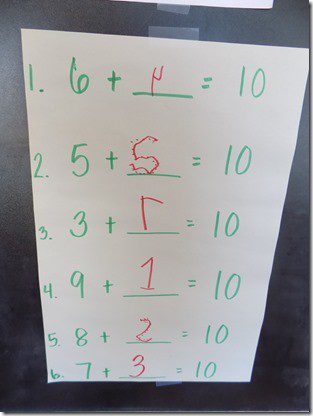 1. 6 + 4 = 10
2. 5 + 5 = 10
3. 3 + 7 = 10
4. 9 + 1 = 10
5. 8 + 2 = 10
6. 7 + 3 = 10